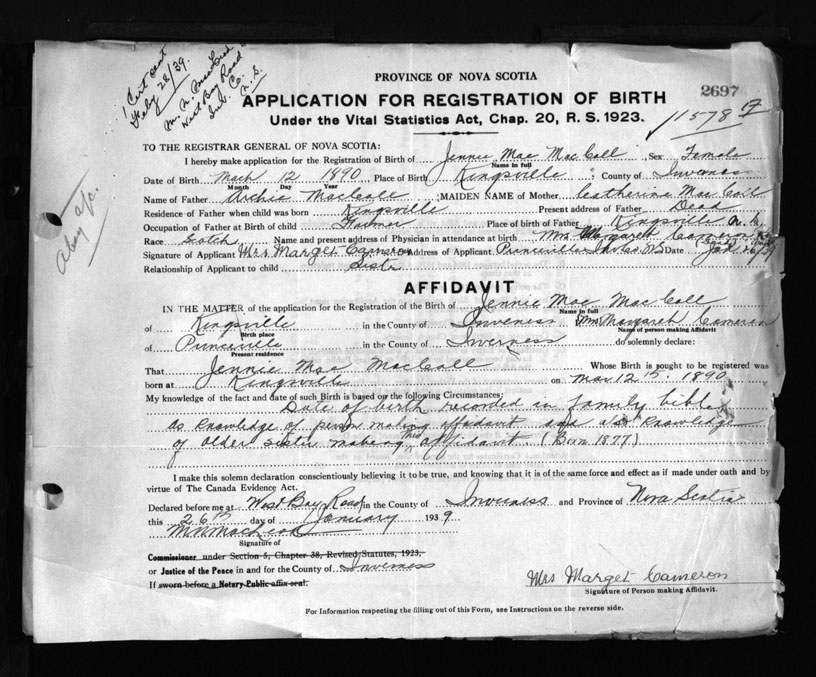 1 Cert sent
Feby 28/39.
M. N. MacLeod
West Bay Road
Inv. Co.
N. S.
PROVINCE OF NOVA SCOTIA
2697
APPLICATION FOR REGISTRATION OF BIRTH
Under the Vital Statistics Act, Chap. 20, R. S. 1923.
11578
TO THE REGISTRAR GENERAL OF NOVA SCOTIA:
I hereby make application for the Registration of Birth of Jennie Mae MacColl Sex Female
Name in full
Date of Birth Mach 12 1890 Place of Birth Kingsville County of Inverness
Month Day Year
Name of Father Archie MacColl MAIDEN NAME of Mother Catherine MacColl
Residence of Father when child was born Kingsville Present address of Father Dead
Occupation of Father at Birth of child Farmer Place of birth of Father Kingsville N. S.
Race Scotch Name and present address of Physician in attendance at birth Mrs Margaret Cameron
Signature of Applicant Mrs Marget Cameron Address of Applicant Princeville Inv Co NS Date Jan 26/39
Relationship of Applicant to child Sistr
a/c.
AFFIDAVIT
IN THE MATTER of the application for the Registration of the Birth of Jennie Mae MacColl
Name in full
of Kingsville in the County of Inverness Mrs Margaret Cameron
Birth place Name of person making Affidavit
of Princeville in the County of Inverness do solemnly declare:
Present residence
That Jennie Mae MacColl Whose Birth is sought to be registered was
born at Kingsville on Mar 12th. 1890
My knowledge of the fact and date of such Birth is based on the following Circumstances:
Date of birth recorded in family bible
as knowledge of person making affidavit and also knowledge
of older sister making this affidavit (Born 1877)
I make this solemn declaration conscientiously believing it to be true, and knowing that it is of the same force and effect as if made under oath and by
virtue of The Canada Evidence Act.
Declared before me at West Bay Road in the County of Inverness and Province of Nova Scotia
this 26th day of January 1939
M N MacLeod
Signature of
Commissioner under Section 5, Chapter 38, Revised Statutes, 1923,
or Justice of the Peace in and for the County of Inverness
If sworn before a Notary Public affix seal.
Mrs Marget Cameron
Signature of Person making Affidavit.
For Information respecting the filling out of this Form, see Instructions on the reverse side.